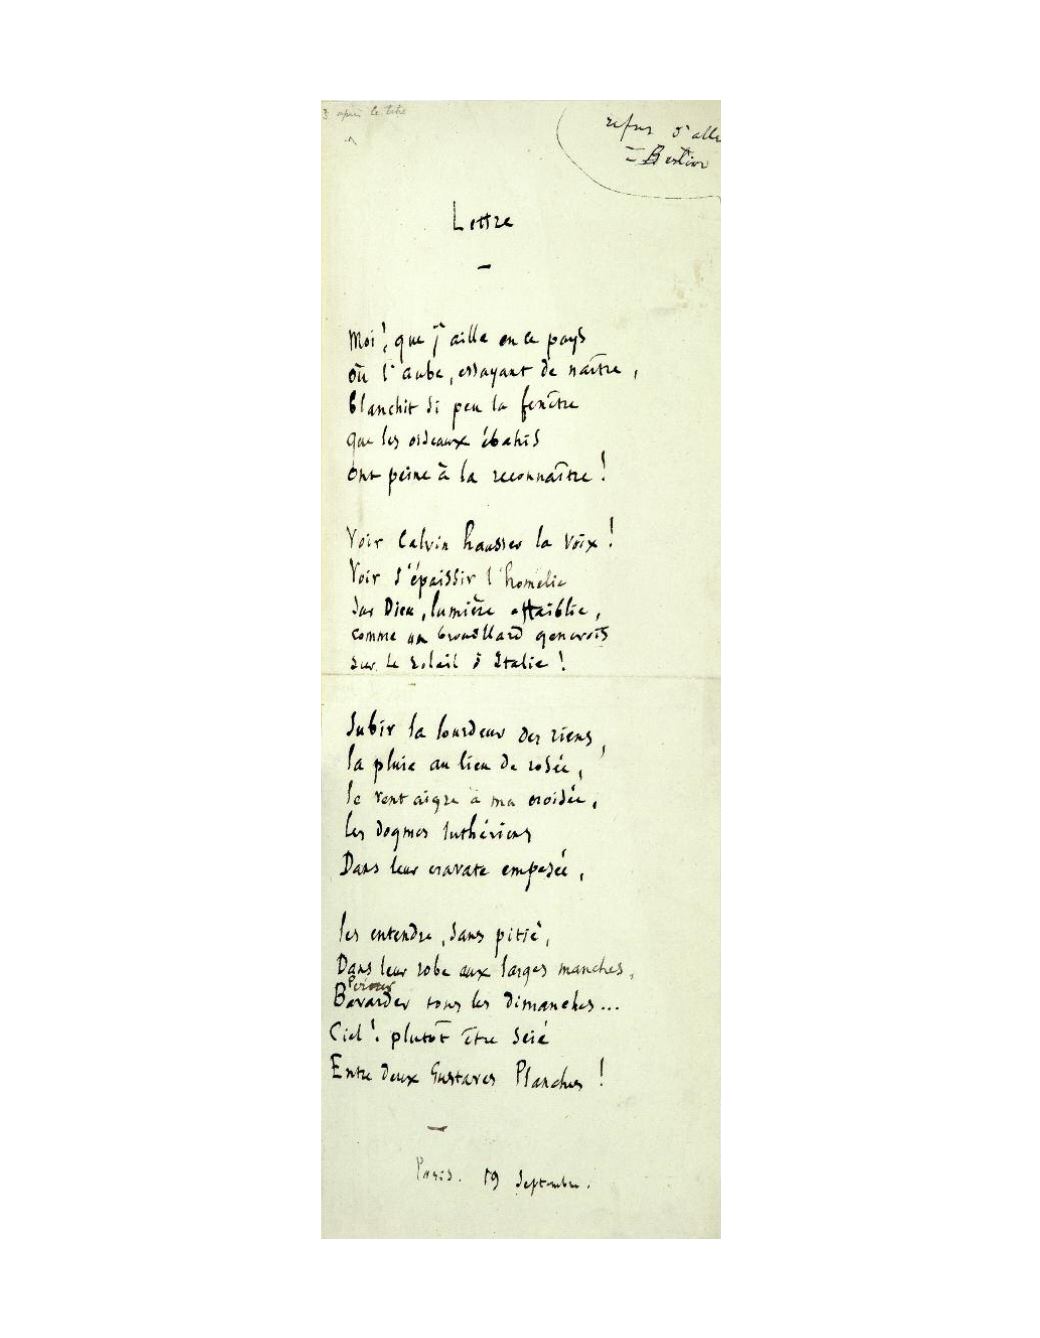 3 après le titre
refus d'alle
=Bestion
Lettre
Moi! que j'aille en ce pays
où l'aube, essayant de naître,
blanchit si peu la fenêtre
que les oiseaux ébahis
ont peine à la reconnaître!
Voir Calvin hausser la voix!
Voir s'épaissir l'homélie
sur Dieu, lumière affaiblie,
comme un brouillard genevois
sur le soleil d'Italie!
Subir la lourdeur des riens,
la pluie au lieu de rosée,
le vent aigre à ma croisée,
les dogmes luthériens
Dans leur cravate empesée,
les entendre, sans pitié,
Dans leur robe aux larges manches,
Pérorer
Bavarder tous les dimanches...
Ciel! plutôt être scié
Entre deux Gustaves Planches!
Paris. 19 septembre.